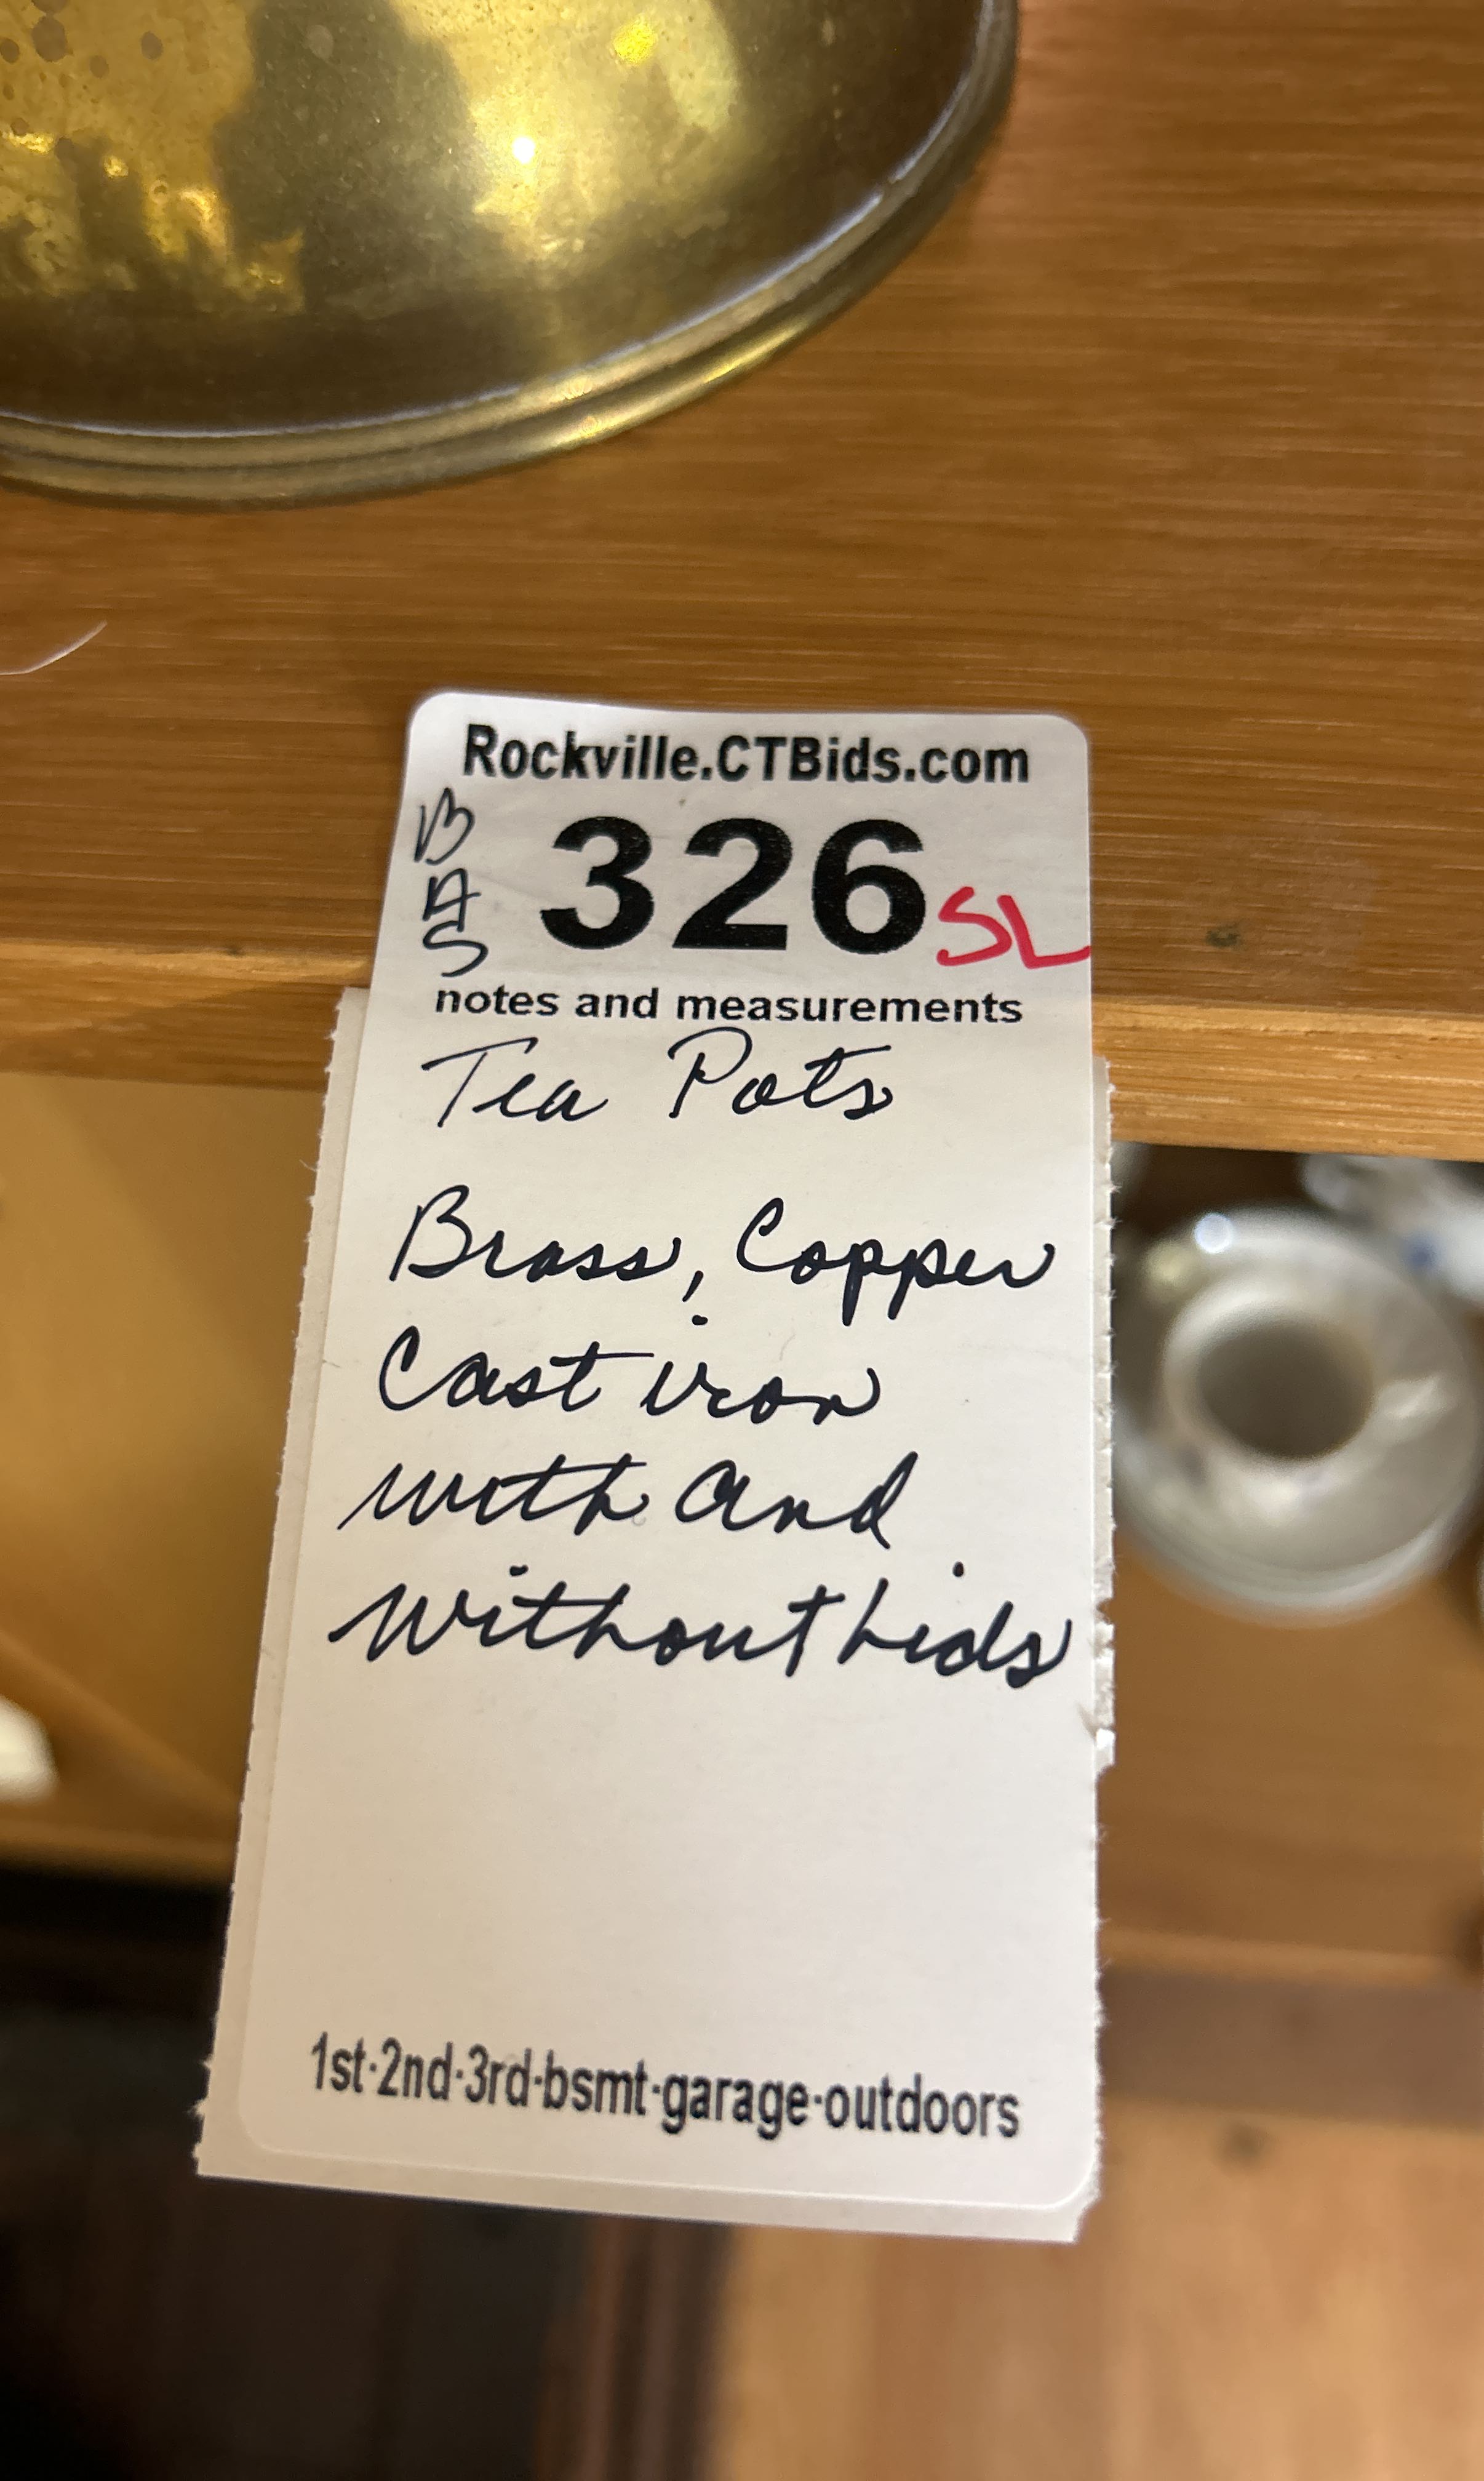 Rockville.CTBids.com
BAS
326 SL
notes and measurements
Tea Pots
Brass, Copper
Cast iron
with and
without Lids
1st·2nd·3rd·bsmt·garage·outdoors